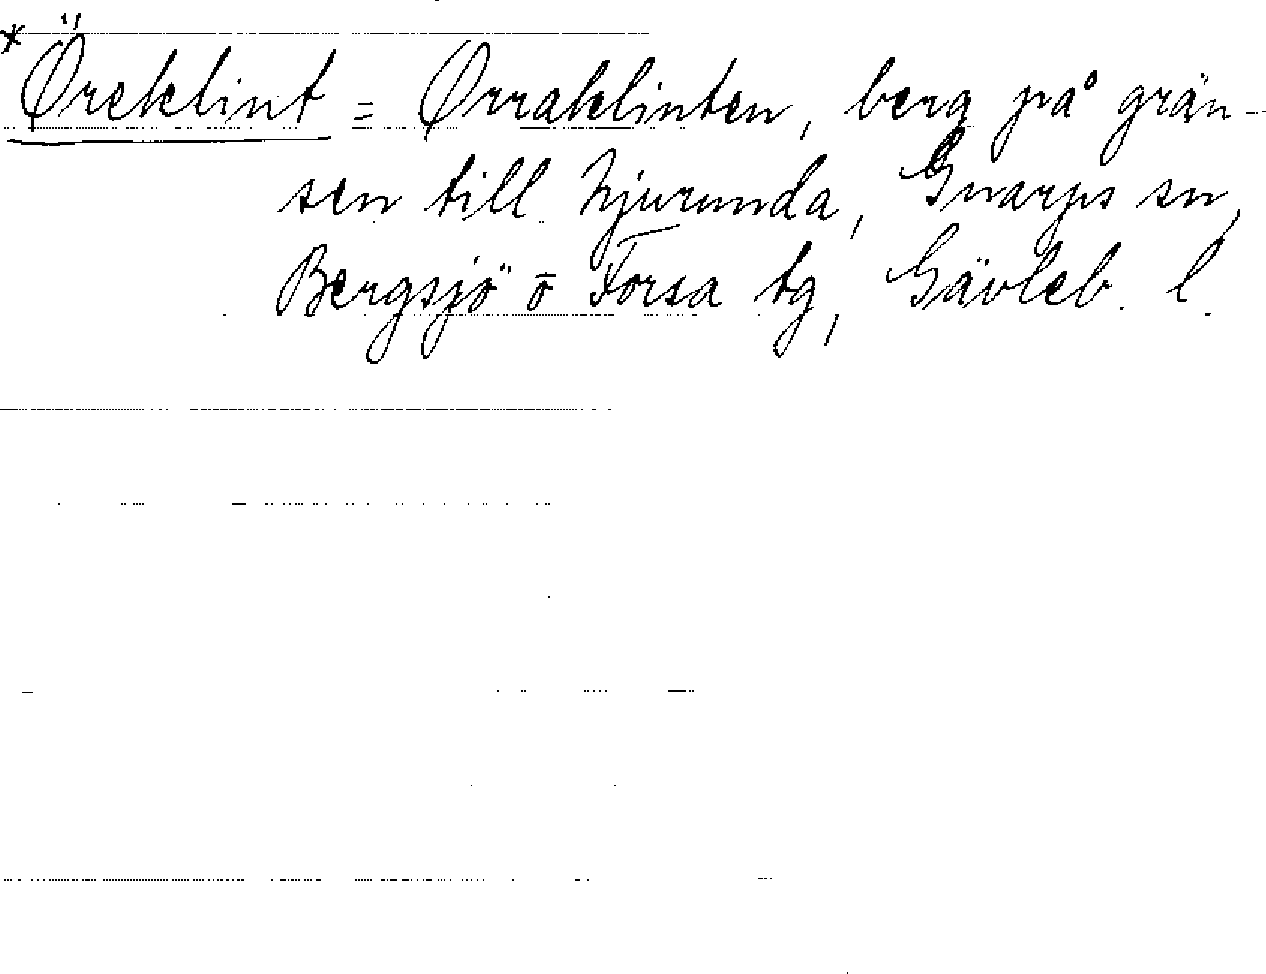 *Öreklint = Ørraklinten, berg på grän-
sen till Njurunda, Gnarps sn,
Bergsjö o Forsa tg, Gävleb. l.